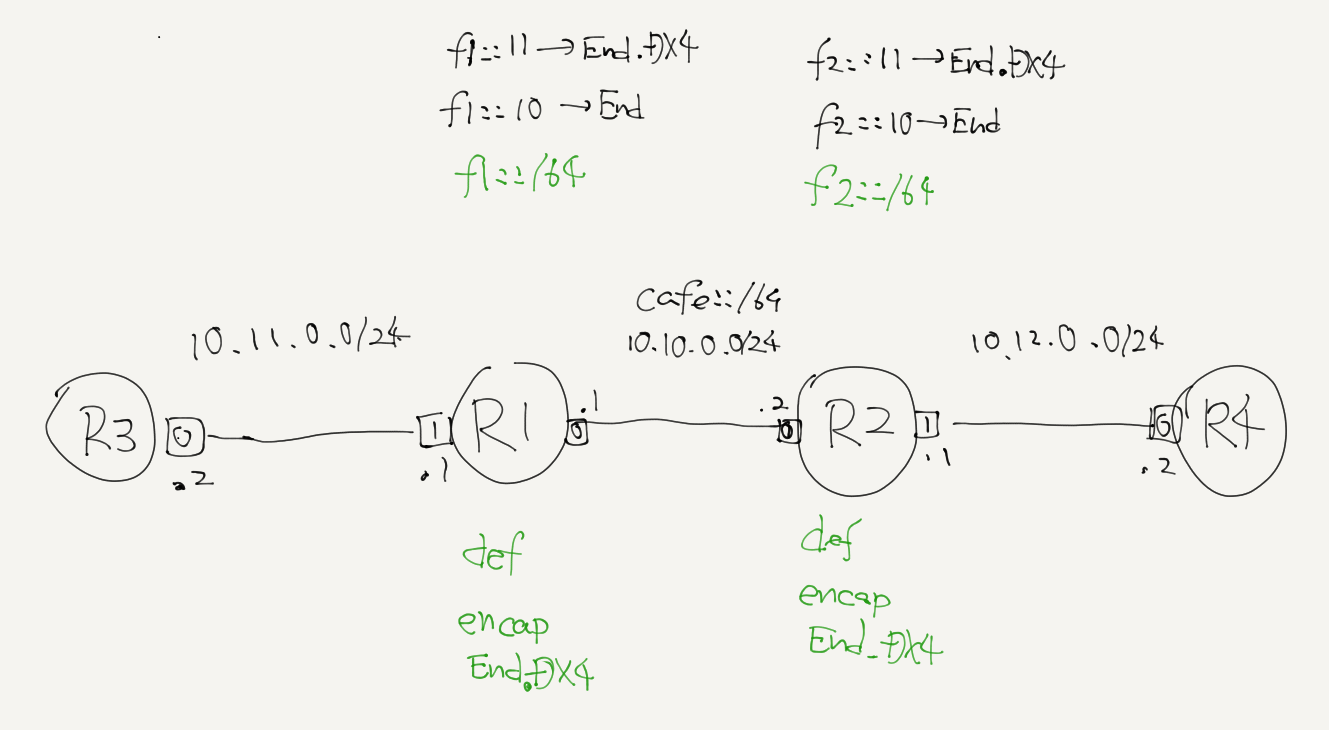 f1::11→End.DX4
f1::10→End
f1::/64
f2::11→End.DX4
f2::10→End
f2::/64
cafe::/64
10.11.0.0/24
10.10.0.0/24
10.12.0.0/24
R3
0
.2
1
.1
R1
0
.1
.2
0
R2
1
.1
0
.2
R4
def
encap
End.DX4
def
encap
End.DX4